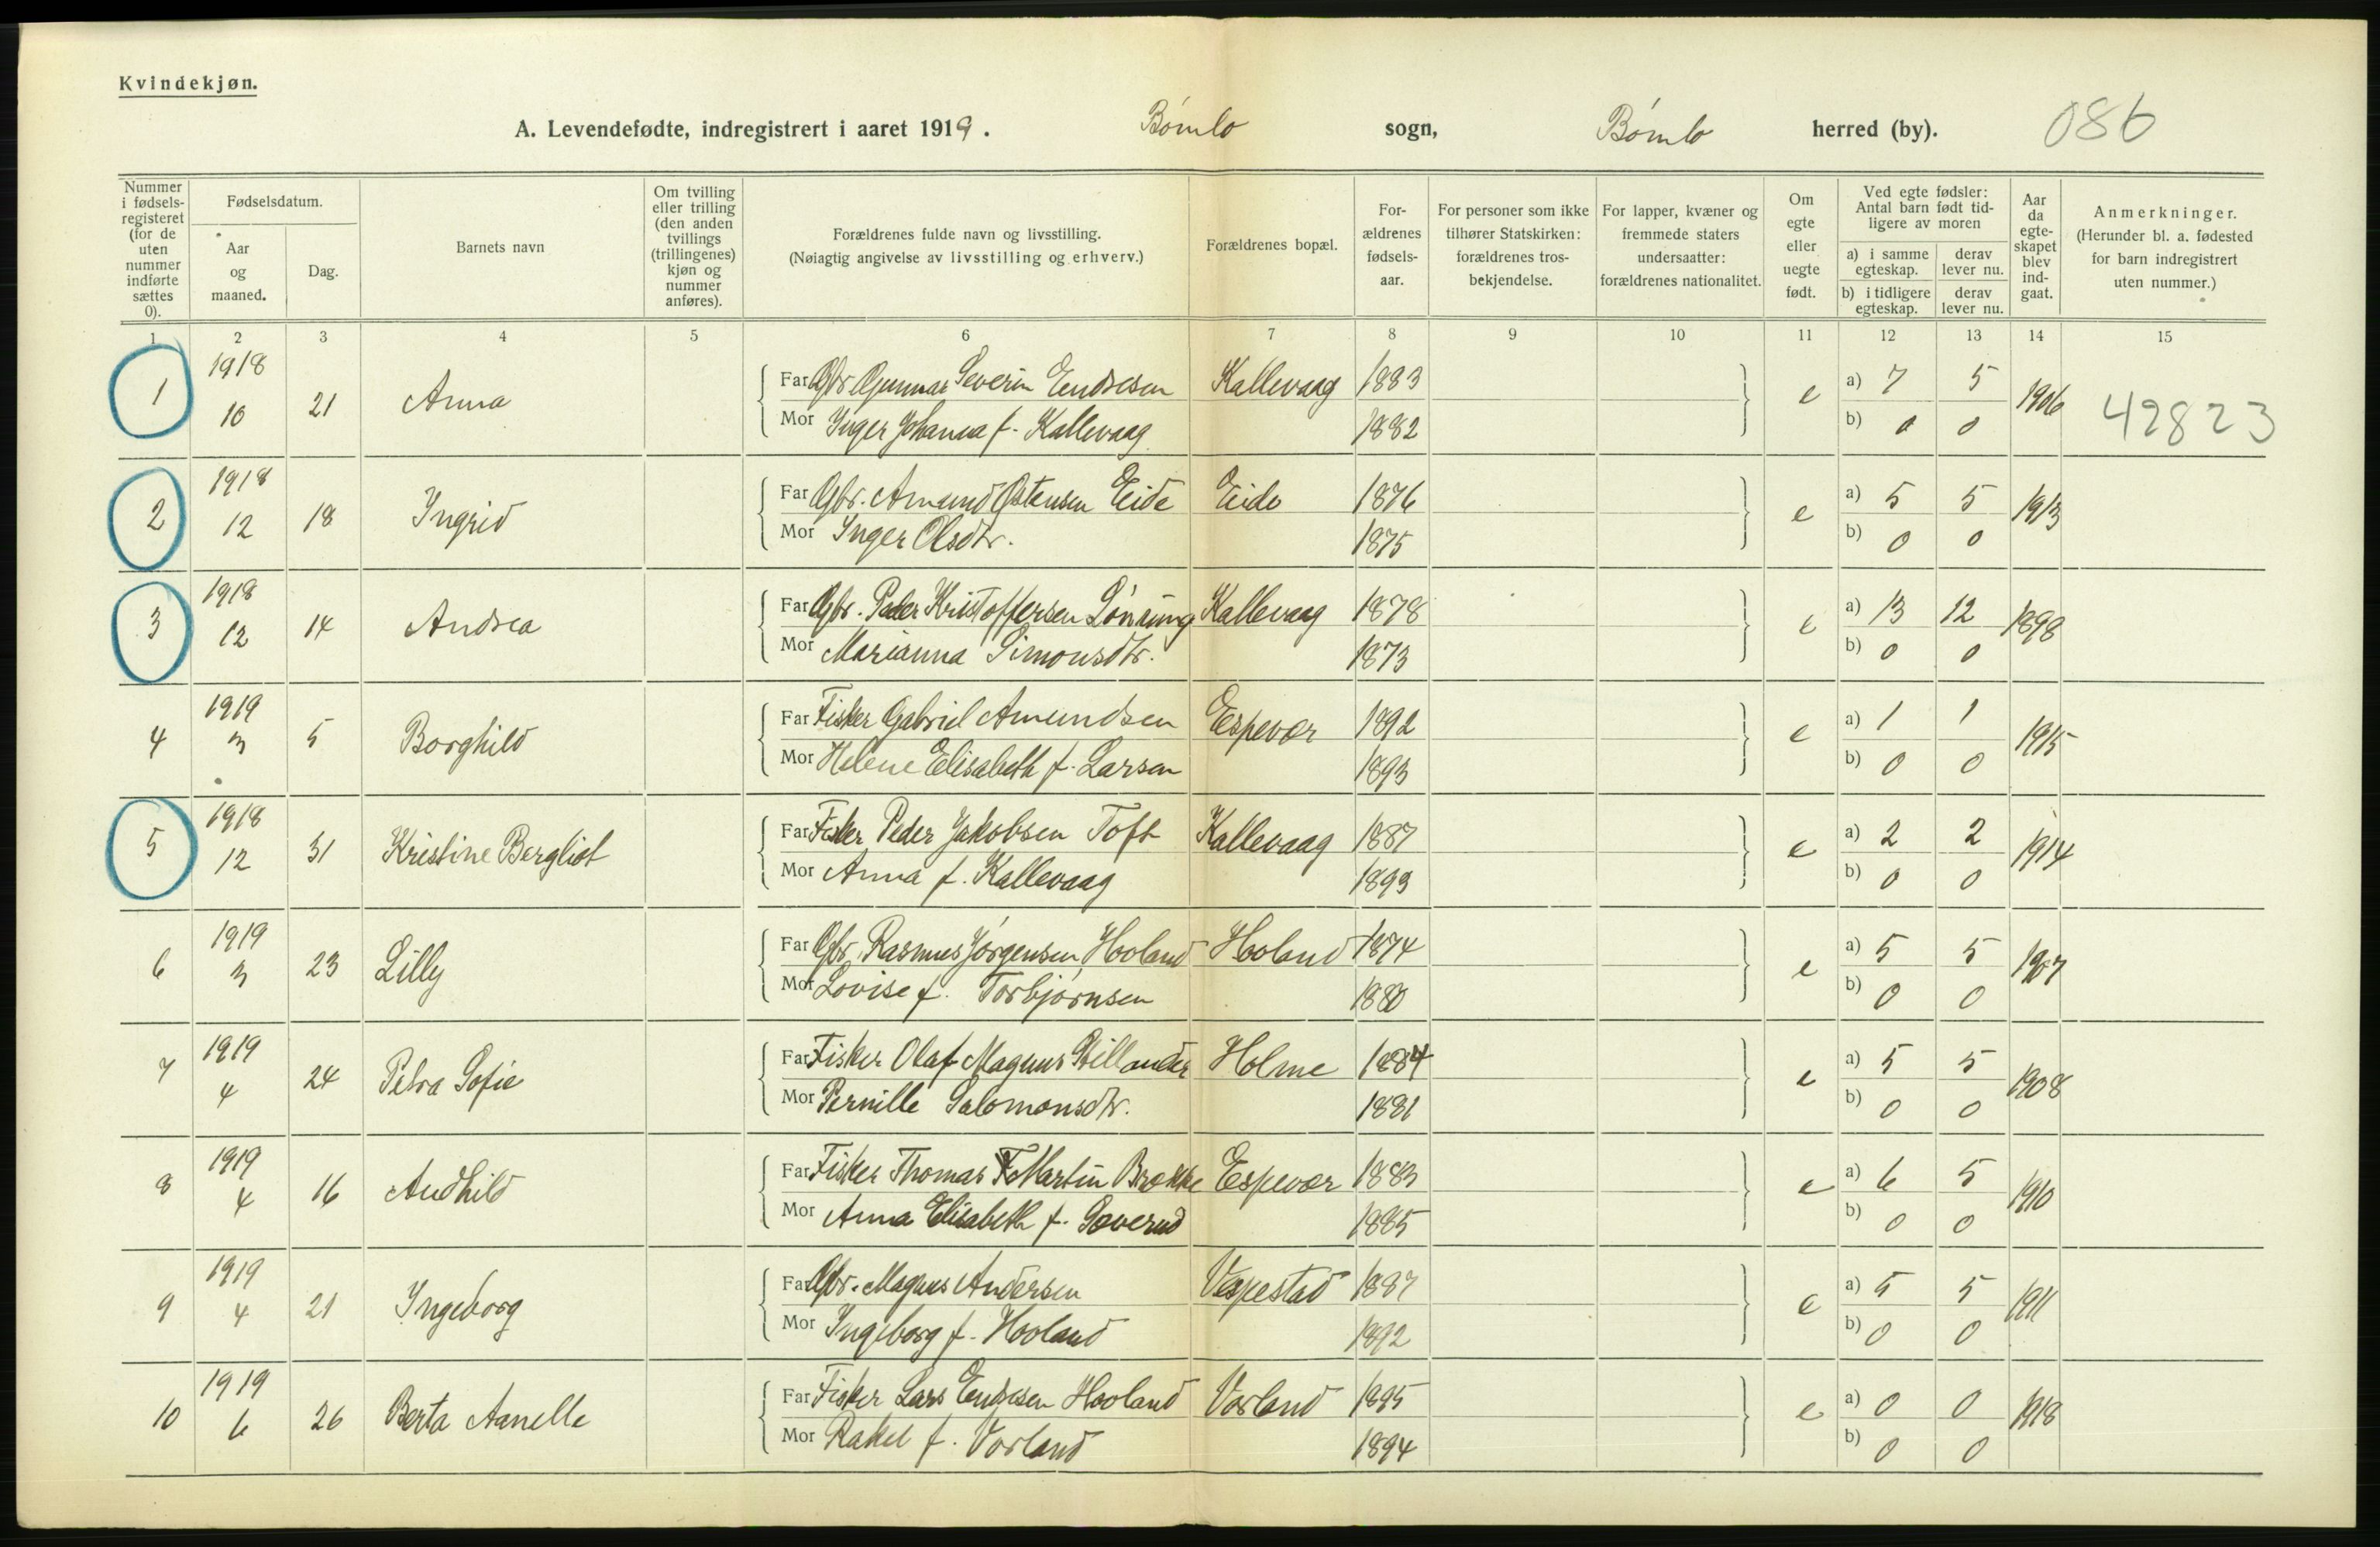 Kvindekjøn.
A. Levendefødte, indregistrert i aaret 1919. Bømlo sogn, Bømlo herred (by). 086
Nummer i fødsels-registeret (for de uten nummer indførte sættes 0).
Fødselsdatum.
Aar og maaned.
Dag.
Barnets navn
Om tvilling eller trilling (den anden tvillings (trillingenes) kjøn og nummer anføres).
Forældrenes fulde navn og livsstilling.
(Nøiagtig angivelse av livsstilling og erhverv.)
Forældrenes bopæl.
For-ældrenes fødsels-aar.
For personer som ikke tilhører Statskirken: forældrenes tros-bekjendelse.
For lapper, kvæner og fremmede staters undersaatter: forældrenes nationalitet.
Om egte eller uegte født.
Ved egte fødsler: Antal barn født tid-ligere av moren
a) i samme egteskap.
derav lever nu.
b) i tidligere egteskap.
derav lever nu.
Aar da egte-skapet blev ind-gaat.
Anmerkninger.
(Herunder bl. a. fødested for barn indregistrert uten nummer.)
1 2 3 4 5 6 7 8 9 10 11 12 13 14 15
1 1918 10 21 Anna Far Gbr. Gunnar Severin Endresen Kallevaag 1883 e a) 7 5 1906 42823
Mor Inger Johanna f. Kallevaag 1882 b) 0 0
2 1918 12 18 Ingrid Far Gbr. Amund Østensen Eide Eide 1876 e a) 5 5 1913
Mor Inger Olsdtr. 1875 b) 0 0
3 1918 12 14 Andrea Far Gbr. Peder Kristoffersen Lønning Kallevaag 1878 e a) 13 12 1898
Mor Marianna Simonsdtr. 1873 b) 0 0
4 1919 3 5 Borghild Far Fisker Gabriel Amundsen Espevær 1892 e a) 1 1 1915
Mor Helene Elisabeth f. Larsen 1893 b) 0 0
5 1918 12 31 Kristine Bergliot Far Fisker Peder Jakobsen Toft Kallevaag 1887 e a) 2 2 1914
Mor Anna f. Kallevaag 1893 b) 0 0
6 1919 3 23 Lilly Far Gbr. Rasmus Jørgensen Hovland Hovland 1874 e a) 5 5 1907
Mor Lovise f. Torbjørnsen 1880 b) 0 0
7 1919 4 24 Petra Sofie Far Fisker Olaf Magnus Holme 1884 e a) 5 5 1908
Mor Pernille Salomonsdtr. 1881 b) 0 0
8 1919 4 16 Audhild Far Fisker Thomas Martin Brække Espevær 1883 e a) 6 5 1910
Mor Anna Elisabeth f. 1885 b) 0 0
9 1919 4 21 Ingeborg Far Gbr. Magnus Andersen Vespestad 1887 e a) 5 5 1911
Mor Ingeborg f. Hovland 1892 b) 0 0
10 1919 6 26 Berta Aanelle Far Fisker Lars Endresen Hovland Vorland 1895 e a) 0 0 1918
Mor Rakel f. Vorland 1894 b) 0 0